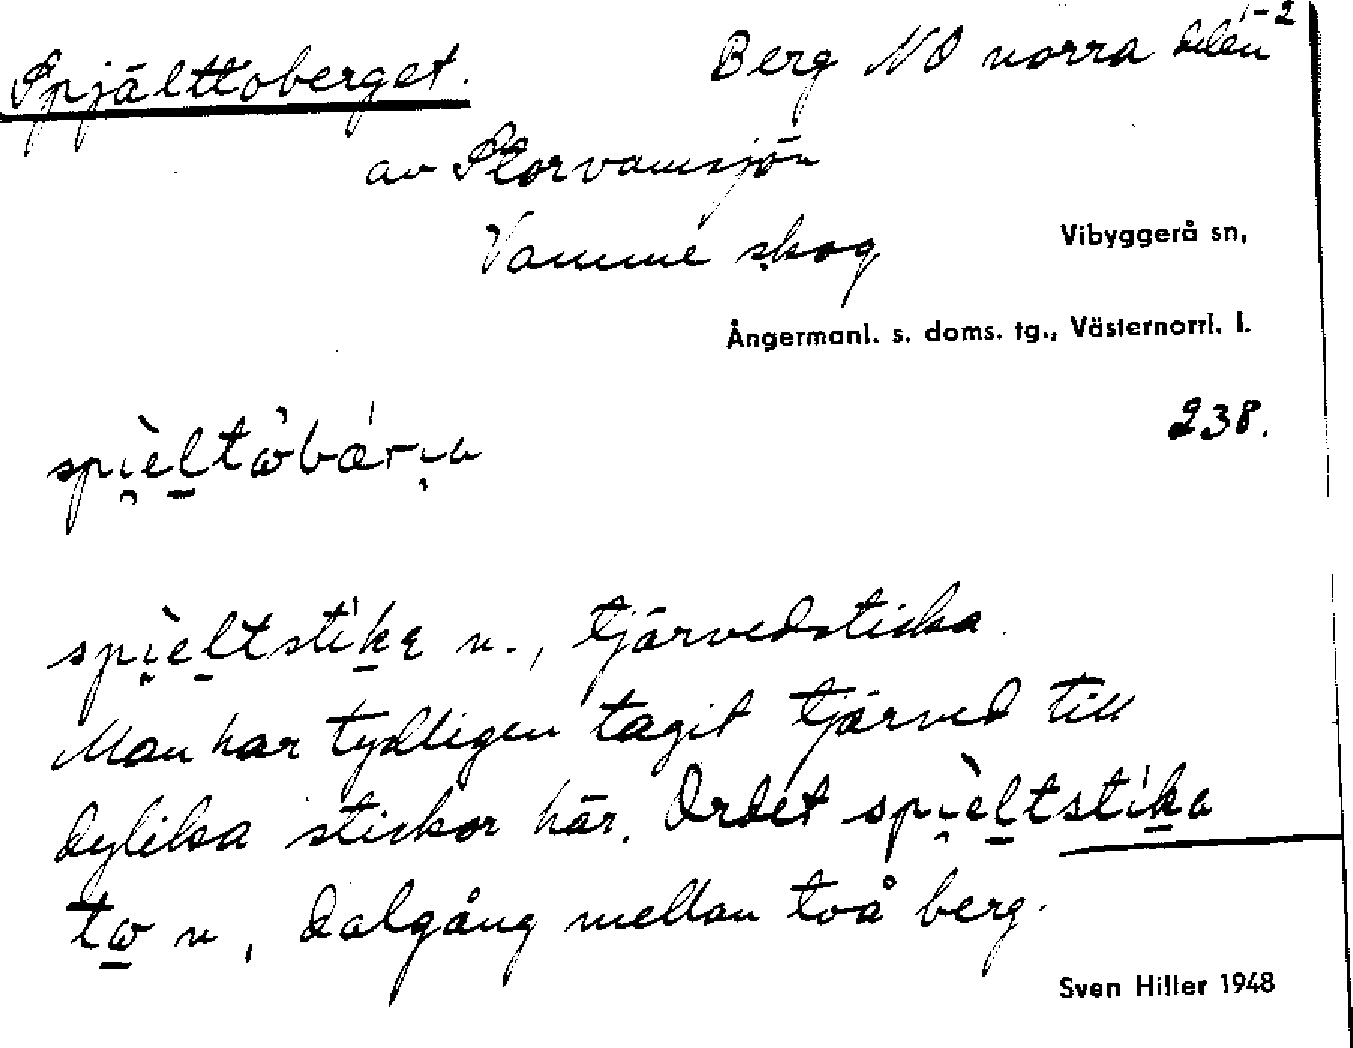 1-2
Spjälttoberget. Berg NO norra delen
av Storvamsjön
Vamme skog
Vibyggerå sn,
Ångermanl. s. doms. tg., Västernorrl. l.
238.
n., tjärvedsticka.
Man har tydligen tagit tjärved till
dylika stickor här. Ordet
n, dalgång mellan två berg.
Sven Hiller 1948